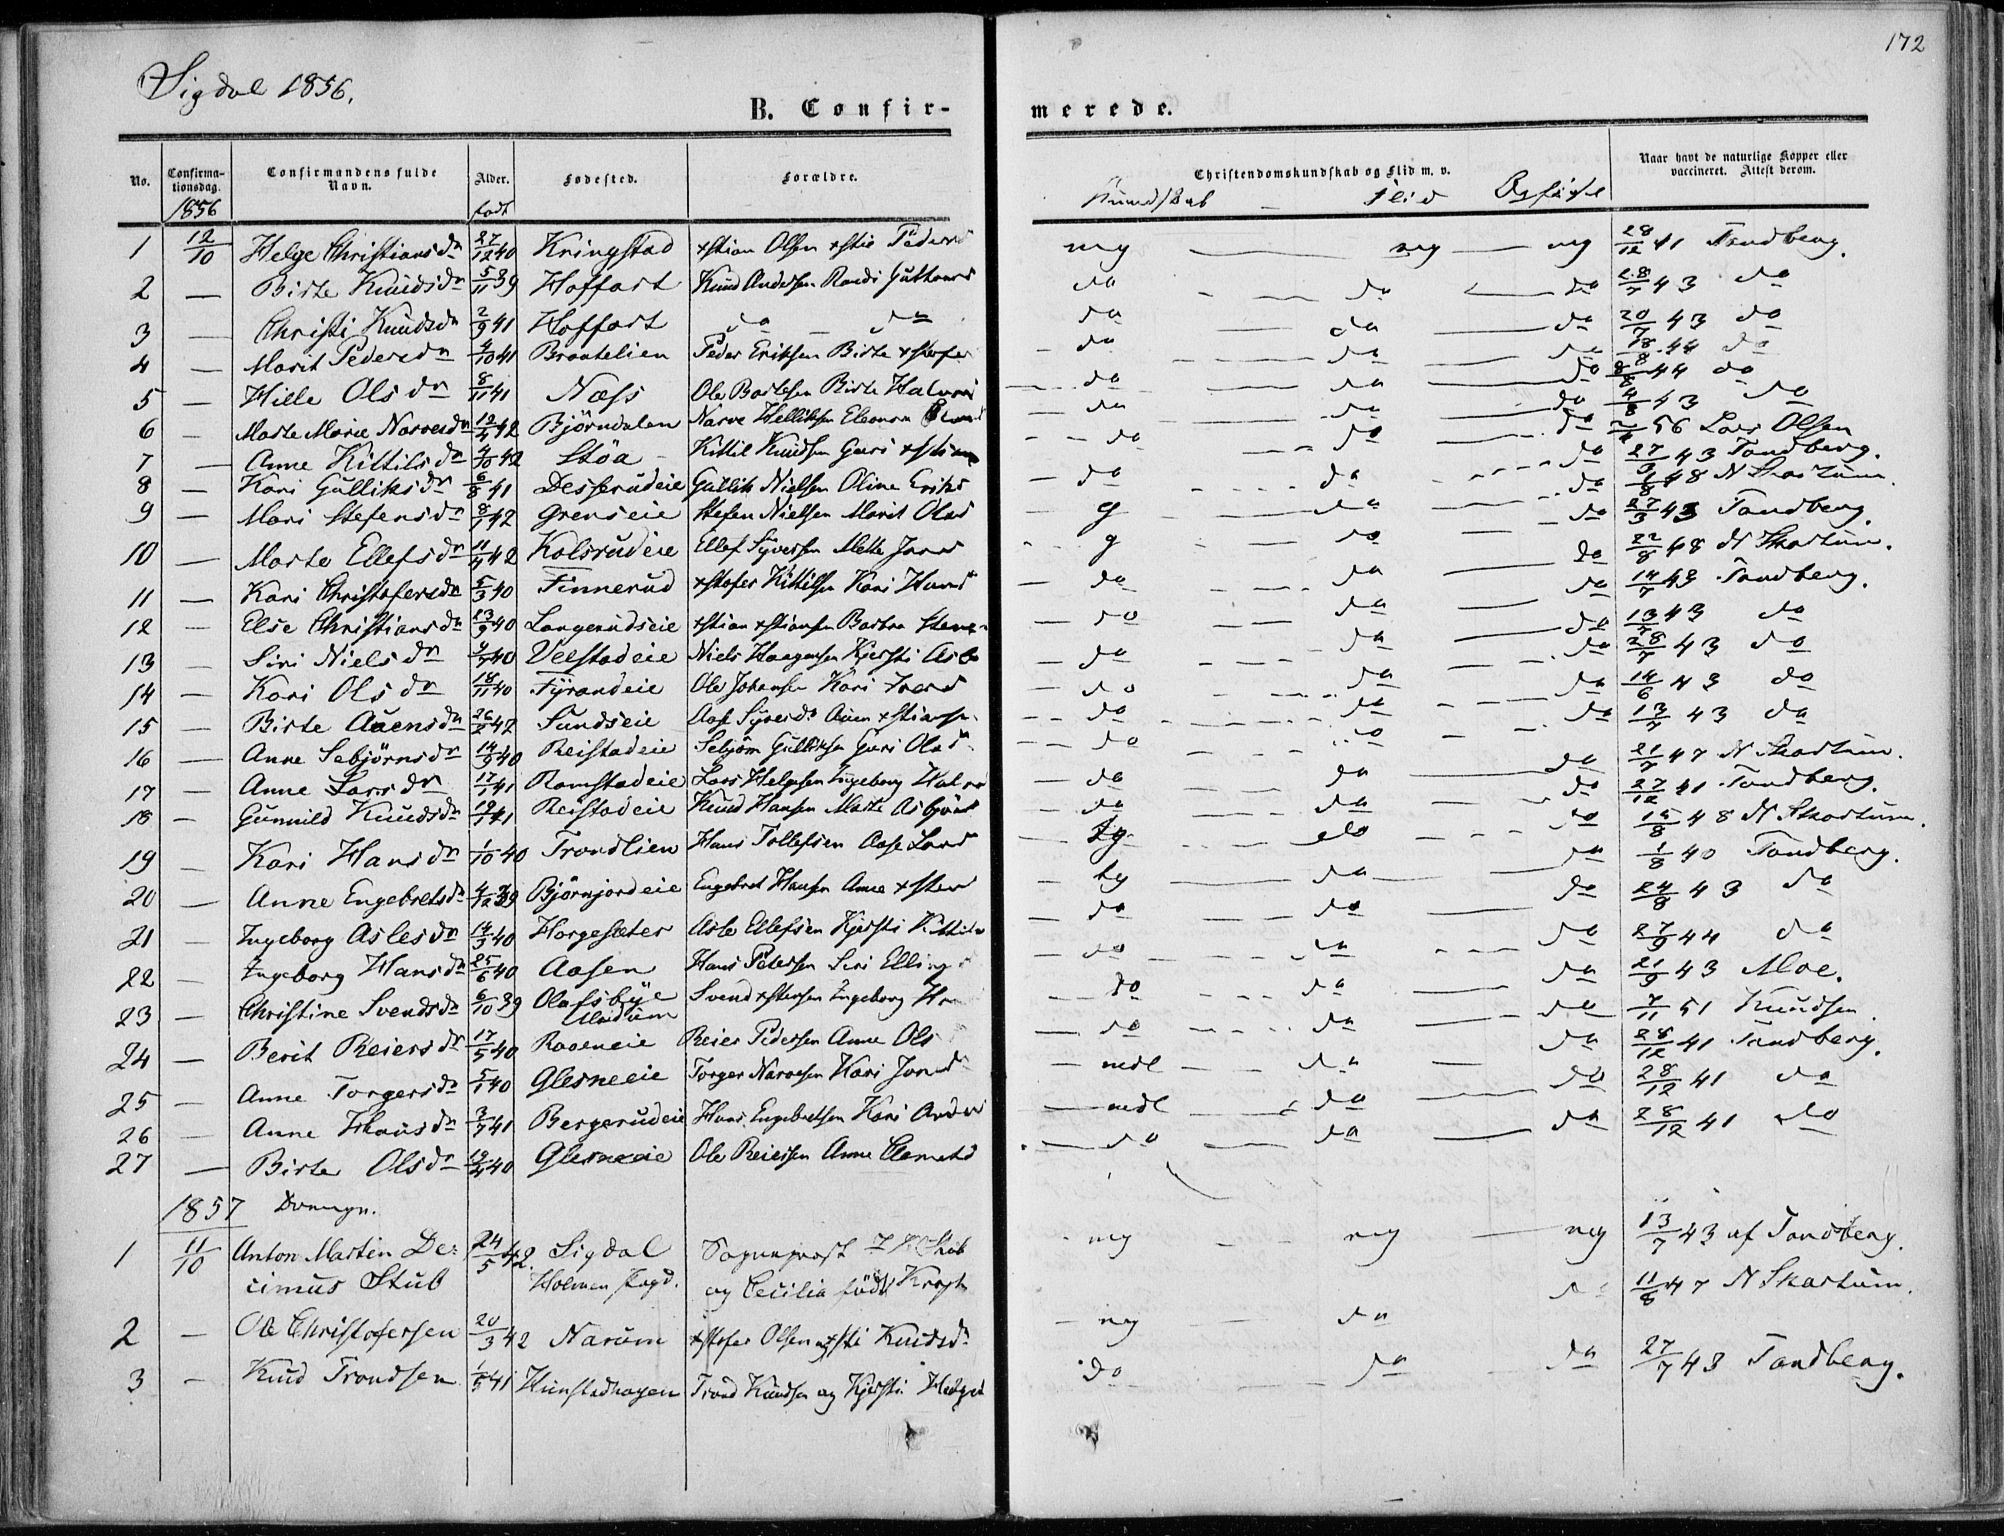 172
Sigdal 1856.
B. Confir-
merede.
No. Confirma-tionsdag. Confirmandens fulde Navn. Alder. Fødested. Forældre. Christendomskundskab og Flid m. v. Naar havt de naturlige Kopper eller vaccineret. Attest derom.
1856 født Kundskab Flid
1 12/10 Helge Christiansdr 27/12 40 Kringstad xstian Olsen xstie Pedersd mg mg mg 28/12 41 Tandberg.
2 — Birte Knudsdr 5/11 39 Hoffart Knud Andersen Randi Guttormsd do do do 28/7 43 do
3 — Christi Knudsdr 2/9 41 Hoffart do do do do do 20/7 43 do
4 — Marit Pedersdr 4/10 41 Braatelien Peder Eriksen Birte do do do 44 do
5 — Hille Olsdr 8/11 41 Næss Ole Birte Halvors do do do 44 do
6 — Marte Marie Narvesdr 12/4 42 Björndalen Narve Helliksen Eleonora do do do 43 do
7 — Anne Kittilsdr 4/10 42 Støa Kittil Knudsen Guri do do do 56 Lars Olsen
8 — Kari Gulliksdr 6/8 41 Desserudeie Gullik Nielsen Oline Eriks do do do 27 43 Tandberg.
9 — Mari Stefensdr 8/1 42 Grenseie Stefen Nielsen Marit Olsd g do do 48 N Skartum
10 — Marte Ellefsdr 11/4 42 Kolsrudeie Ellef Syversen Mette Jonsd g do do 27/3 43 Tandberg.
11 — Kari Christofersdr 5/3 40 Finnerud xstofer Kittilsen Kari Hansd do do do 22/8 48 N Skartum.
12 — Else Christiansdr 13/9 40 Langerudseie xstian xstiansen Barbra Stens do do do 14/7 43 Tandberg.
13 — Siri Nielsdr 40 Velstadeie Niels Haagensen Kjersti do do do 13 43 do
14 — Kari Olsdr 18/11 40 Fyrandeie Ole Johansen Kari do do do 28/7 43 do
15 — Birte Auensdr 26/2 42 Sundseie Aase Syversdr Auen xstiansen do do do 14/6 43 do
16 — Anne Sebjörnsdr 14/9 40 Reistadeie Sebjörn Gulliksen Guri Olsd do do do 13/7 43 do
17 — Anne Larsdr 17/1 41 Ramstadeie Lars Helgesen Ingeborg Halvors do do do 21/7 47 N Skartum.
18 — Gunnild Knudsdr 41 Reistadeie Knud Hansen Marte Asbjörns do do do 27/12 41 Tandberg.
19 — Kari Hansdr 1/10 40 Trondlien Hans Tollefsen Aase Larsd tg do do 48 N Skartum.
20 — Anne Engebretsdr 4/12 39 Björnjordeie Engebret Hansen Anne tg do do 1/8 40 Tandberg.
21 — Ingeborg Aslesdr 14/3 40 Horgesæter Asle Ellefsen Kjersti Kittils do do do 24/8 43 do
22 — Ingeborg Hansdr 25/6 40 Aasen Hans Petersen Siri Ellings do do do 27/9 44 do
23 — Christine Svendsdr 6/10 39 Olafsbye Modum Svend Ingeborg do do do 21/9 43 Moe.
24 — Berit Reiersdr 17/5 40 Raaeneie Reier Pedersen Anne Ols do do do 7/11 51 Knudsen.
25 — Anne Torgersdr 5/1 40 Glesneeie Torger Narvesen Kari Jonsd mdl do do 28/12 41 Tandberg.
26 — Anne Hansdr 41 Bergerudeie Hans Engebretsen Kari Anders mdl do do 28/12 41 do
27 — Birte Olsdr 40 Glesneeie Ole Reiersen Anne Clemetsd do do do 28/12 41 do
1857 Drenge.
1 11/10 Anton Martin De- 24/5 42. Sigdal Sogneprest Stub mg mg mg 13/7 43 af Tandberg.
cimus Stub Holmen og Cecilia född Krogh
2 — Ole Christofersen 20/3 42 Narum xstofer Olsen og xsti Knudsdr mg do do 11/8 47 N Skartum.
3 — Knud Trondsen 1/5 41 Hunstadhagen Trond Knudsen og Kjersti Helges do do do 27/7 43 Tandberg.